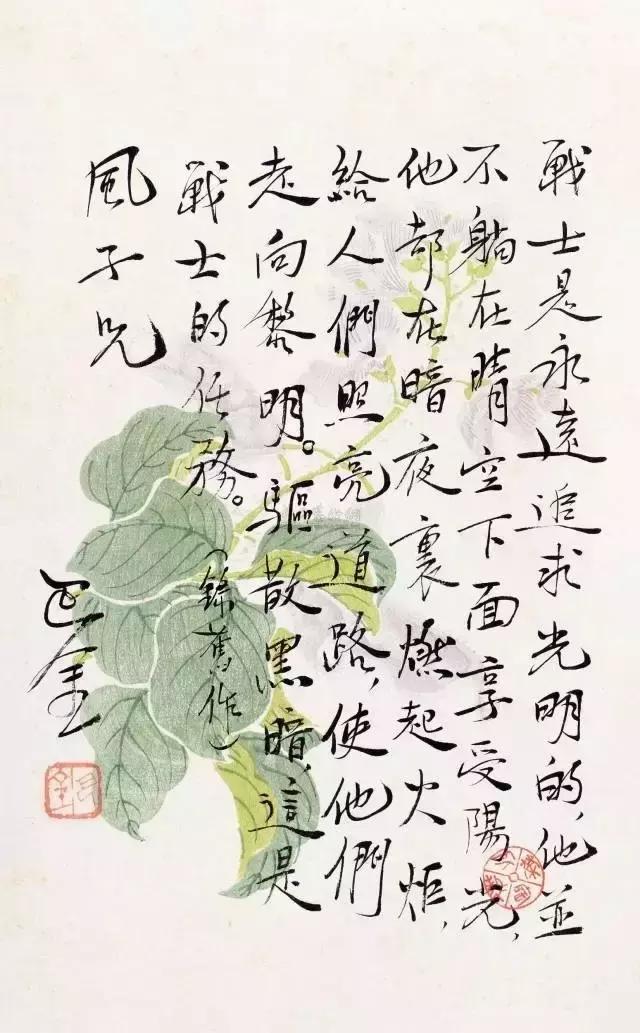 戰士是永遠追求光明的,他並
不躺在晴空下面享受陽光,
他却在暗夜裏燃起火炬,
給人們照亮道路,使他們
走向黎明。驅散黑暗,這是
戰士的任務。(錄舊作)
風子兄
巴金